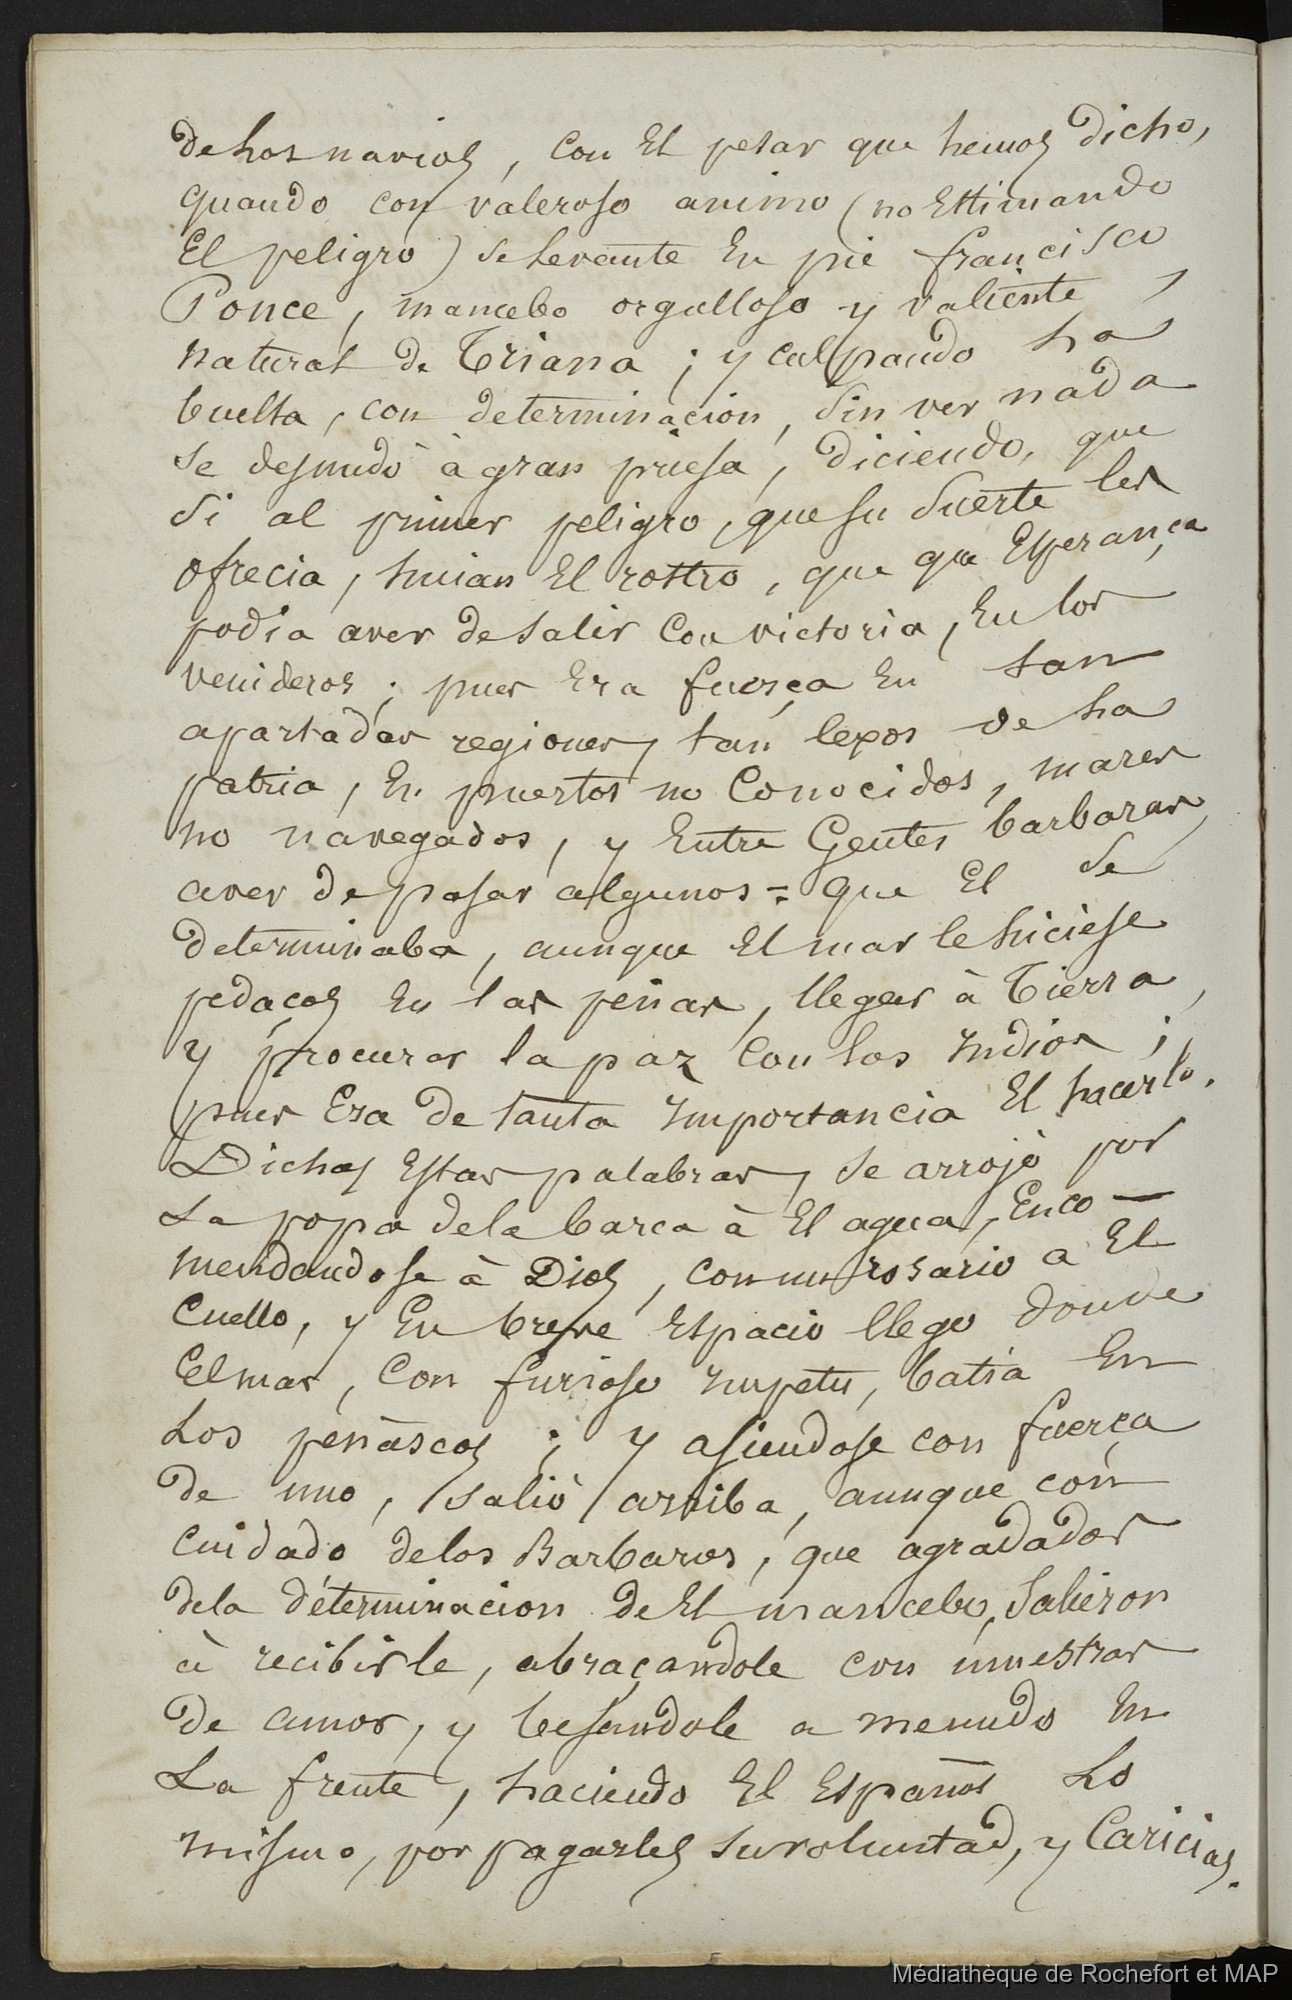 de los navios, con El pesar que hemos dicho,
quando con valeroso animo (no Estimando
El peligro) se levante En pie francisco
Ponce, mancebo orgulloso y valiente,
natural de Triana; y culpando la
buelta, con determinacion, sin ver nada
se desnudò à gran priesa, diciendo, que
si al primer peligro, que su suerte les
ofrecia, huian El rostro, que que Esperança
podia aver de salir con victoria, En los
venideros; pues Era fuerça En tan
apartadas regiones, tan lexos de la
patria, En puertos no Conocidos, mares
no navegados, y Entre Gentes barbaras,
aver de pasar algunos = que El se
determinaba, aunque El mar le hiciese
pedaços En las peñas, llegar à Tierra,
y procurar la paz con los Indios;
pues Era de tanta Importancia El hacerlo.
Dichas Estas palabras, se arrojò por
La popa dela barca à El agua, Enco—
mendandose à Dios, con un rosario a El
Cuello, y En breve Espacio llego donde
El mar, Con furioso Impetu, batia En
Los peñascos; y asiendose con fuerça
de uno, salió arriba, aunque con
cuidado delos Barbaros, que agradados
dela determinacion de El mancebo, salieron
à recibirle, abraçandole con muestras
de amor, y besandole a menudo En
La frente, haciendo El Español Lo
mismo, por pagarles su voluntad, y Caricias.
Médiathèque de Rochefort et MAP